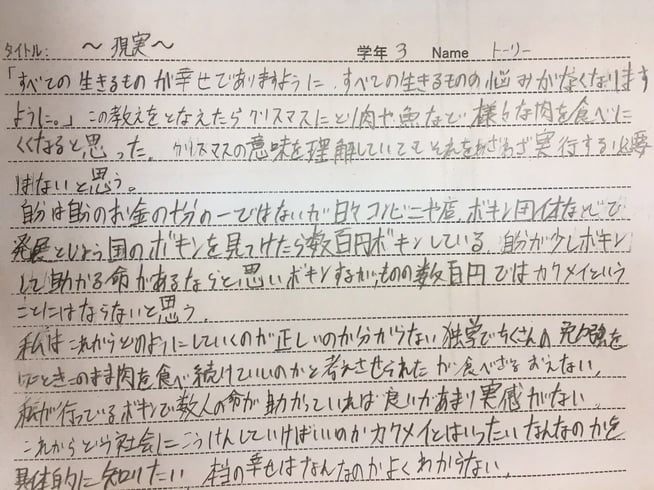 タイトル: ～現実～ 学年 3 Name トーリー
「すべての生きるものが幸せでありますように、すべての生きるものの悩みがなくなります
ように。」この教えをとなえたらクリスマスにとり肉や魚など様々な肉を食べに
くくなると思った。クリスマスの意味を理解していてもそれをわざわざ実行する必要
はないと思う。
自分は自分のお金の十分の一ではないが日々コンビニや店、ボキン団体などで
発展とじょう国のボキンを見つけたら数百円ボキンしている。自分が少しボキン
して助かる命があるならと思いボキンするが、ものの数百円ではカクメイという
ことにはならないと思う。
私はこれからどのようにしていくのが正しいのか分からない 独学でたくさんの勉強を
したときこのまま肉を食べ続けていいのかと考えさせられたが食べざるおえない。
私が行っているボキンで数人の命が助かっていれば良いがあまり実感がない。
これからどう社会にこうけんしていけばいいのかカクメイとはいったいなんなのかを
具体的に知りたい。本当の幸せはなんなのかよくわからない。